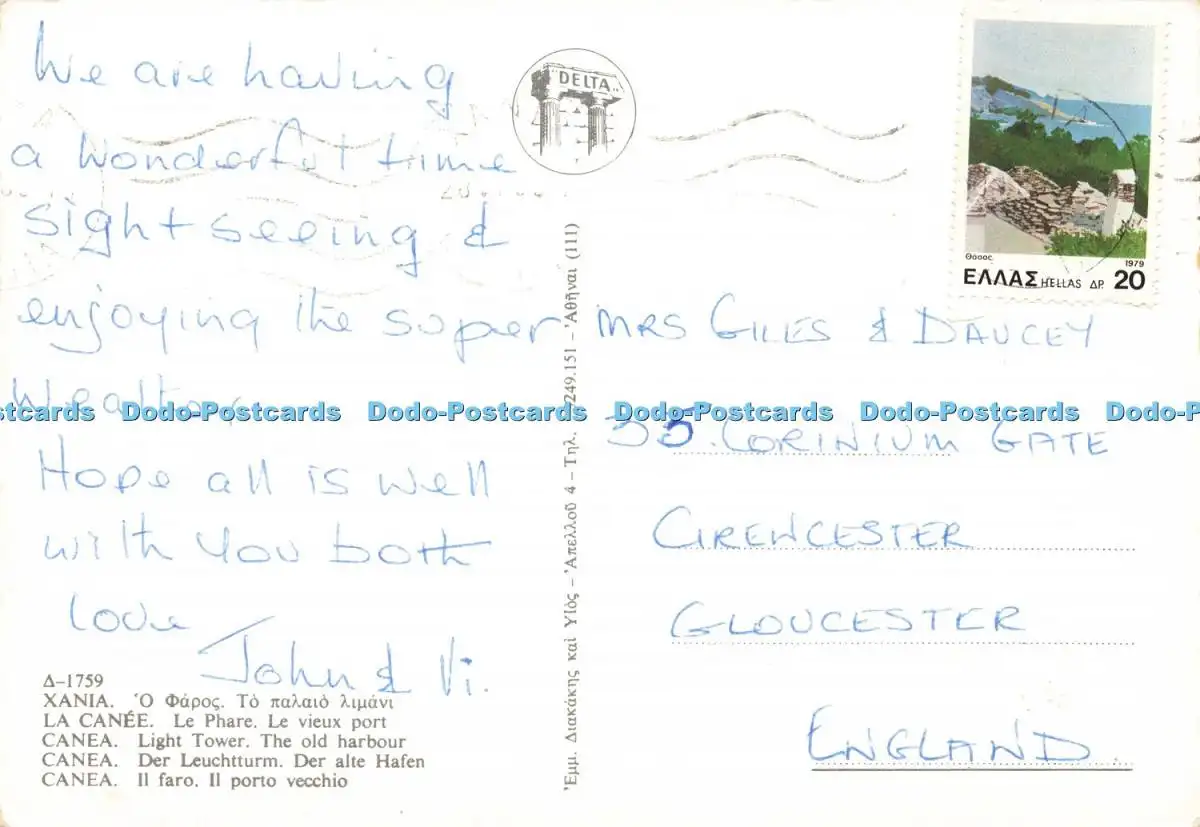 We are having
a wonderful time
sightseeing &
enjoying the super
weather
Hope all is well
with you both
love
John & Vi.
Δ-1759
ΧΑΝΙΑ. Ὁ Φάρος. Τὸ παλαιὸ λιμάνι
LA CANÉE. Le Phare. Le vieux port
CANEA. Light Tower. The old harbour
CANEA. Der Leuchtturm. Der alte Hafen
CANEA. Il faro. Il porto vecchio
DELTA
Ἐμμ. Διακάκης καὶ Υἱὸς – Ἀπελλοῦ 4 – Τηλ. 249.151 – Ἀθῆναι (111)
Θάσος
1979
ΕΛΛΑΣ HELLAS ΔΡ. 20
MRS GILES & DAUCEY
35. CORINIUM GATE
CIRENCESTER
GLOUCESTER
ENGLAND.
Dodo-Postcards Dodo-Postcards Dodo-Postcards Dodo-Postcards